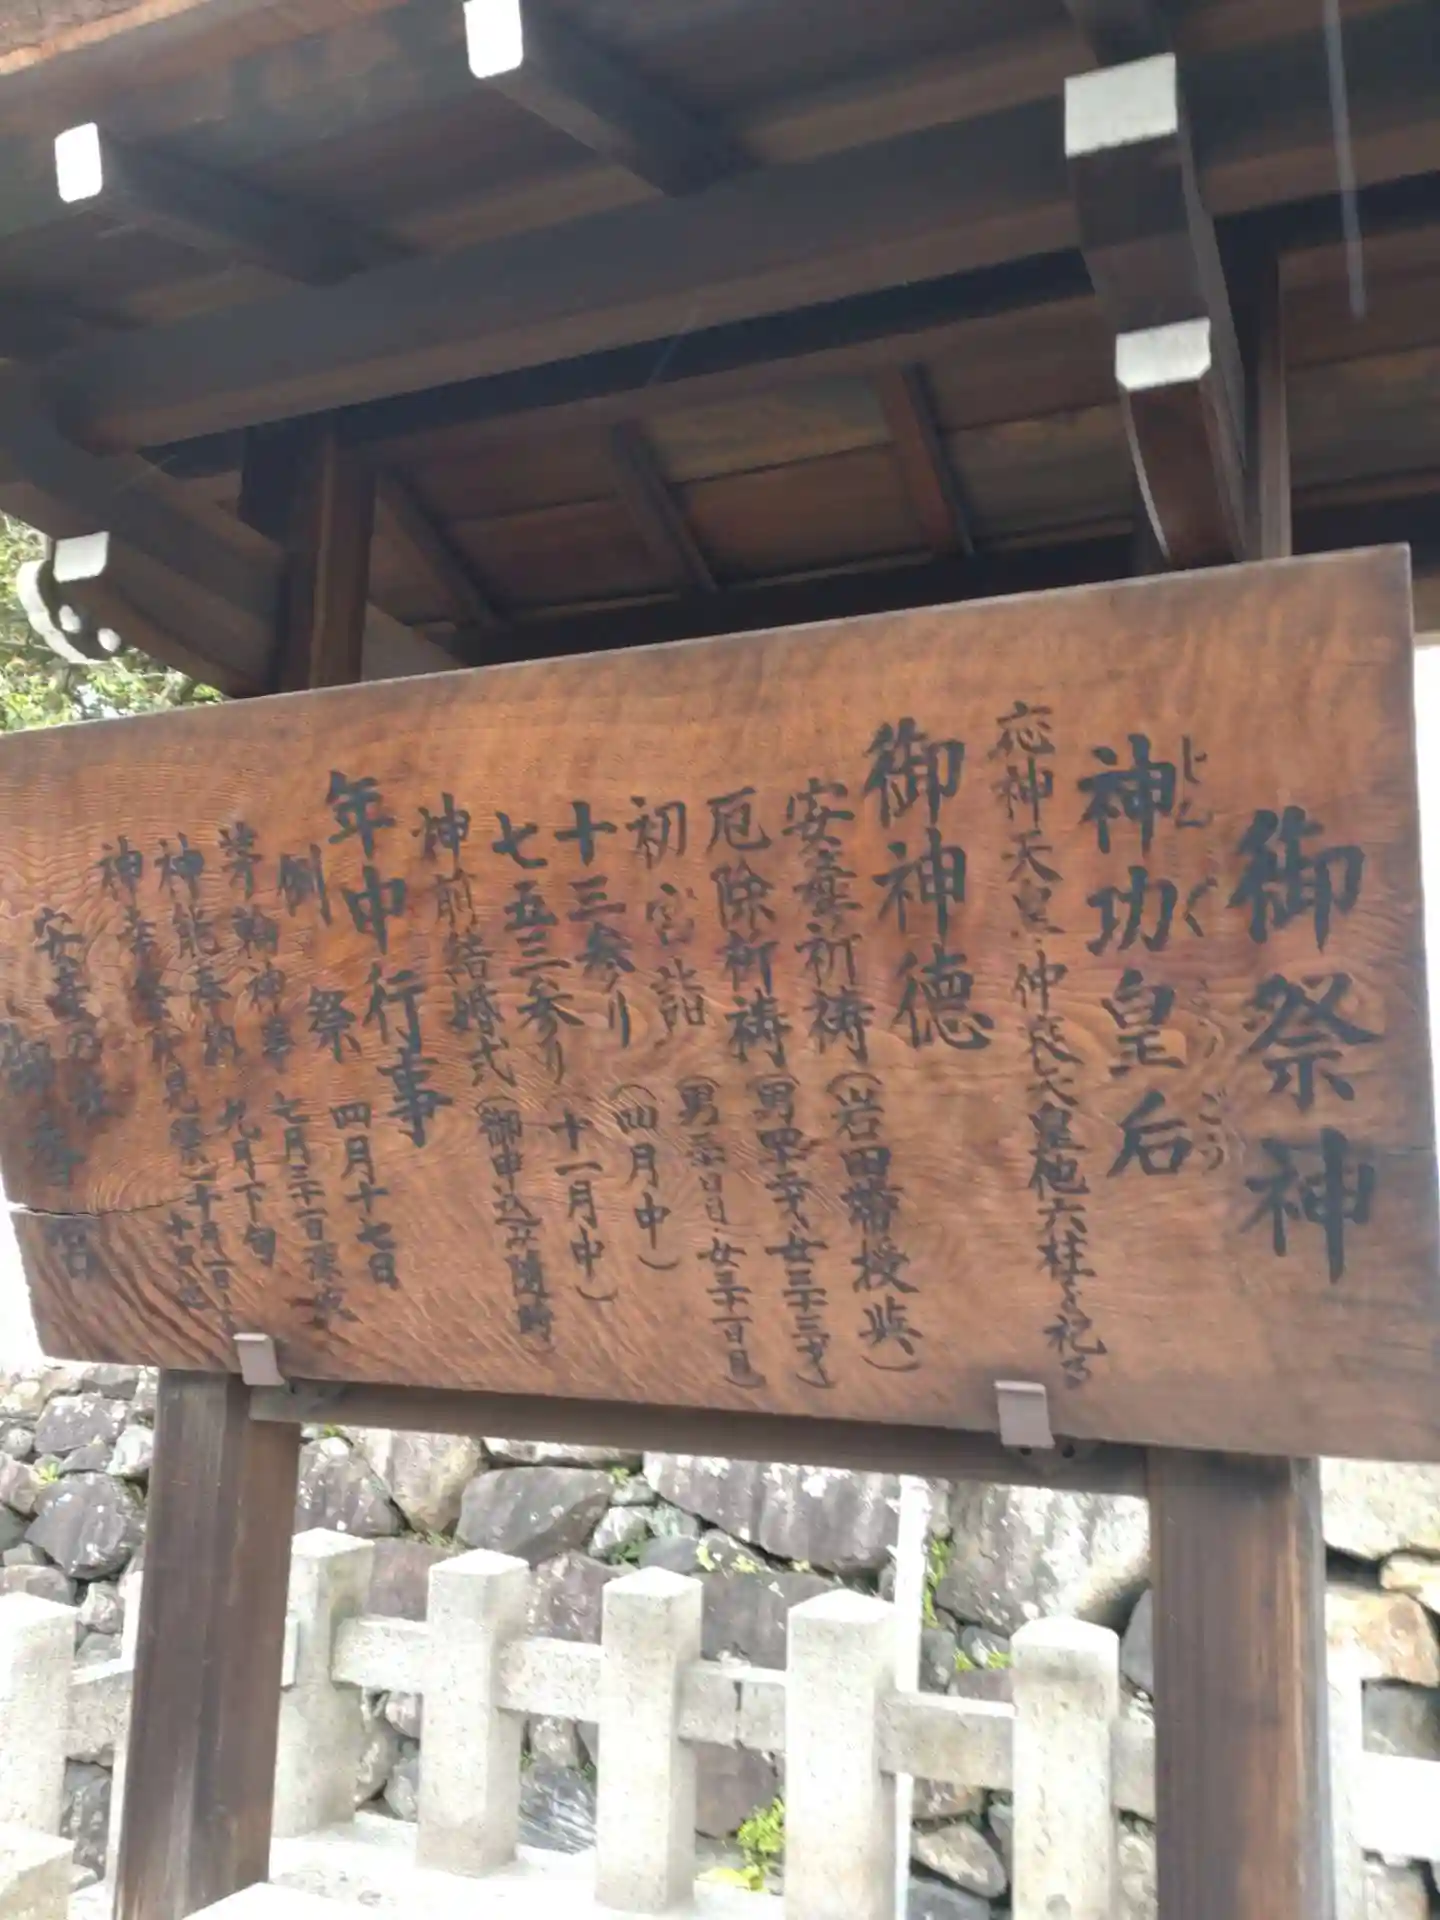 御祭神
じんぐうこうごう
神功皇后
応神天皇・仲哀天皇他六柱を祀る
御神徳
安産祈祷(岩田帯授与)
厄除祈祷(男四二才・女三十三才)
初宮詣(男三十日・女三十一日目)
十三参り(四月中)
七五三参り(十一月中)
神前結婚式(御申込み随時)
年中行事
例祭 四月十七日
茅輪神事 七月三十一日
神能奉納 九月下旬
神幸祭 十月
安産の社
御香宮